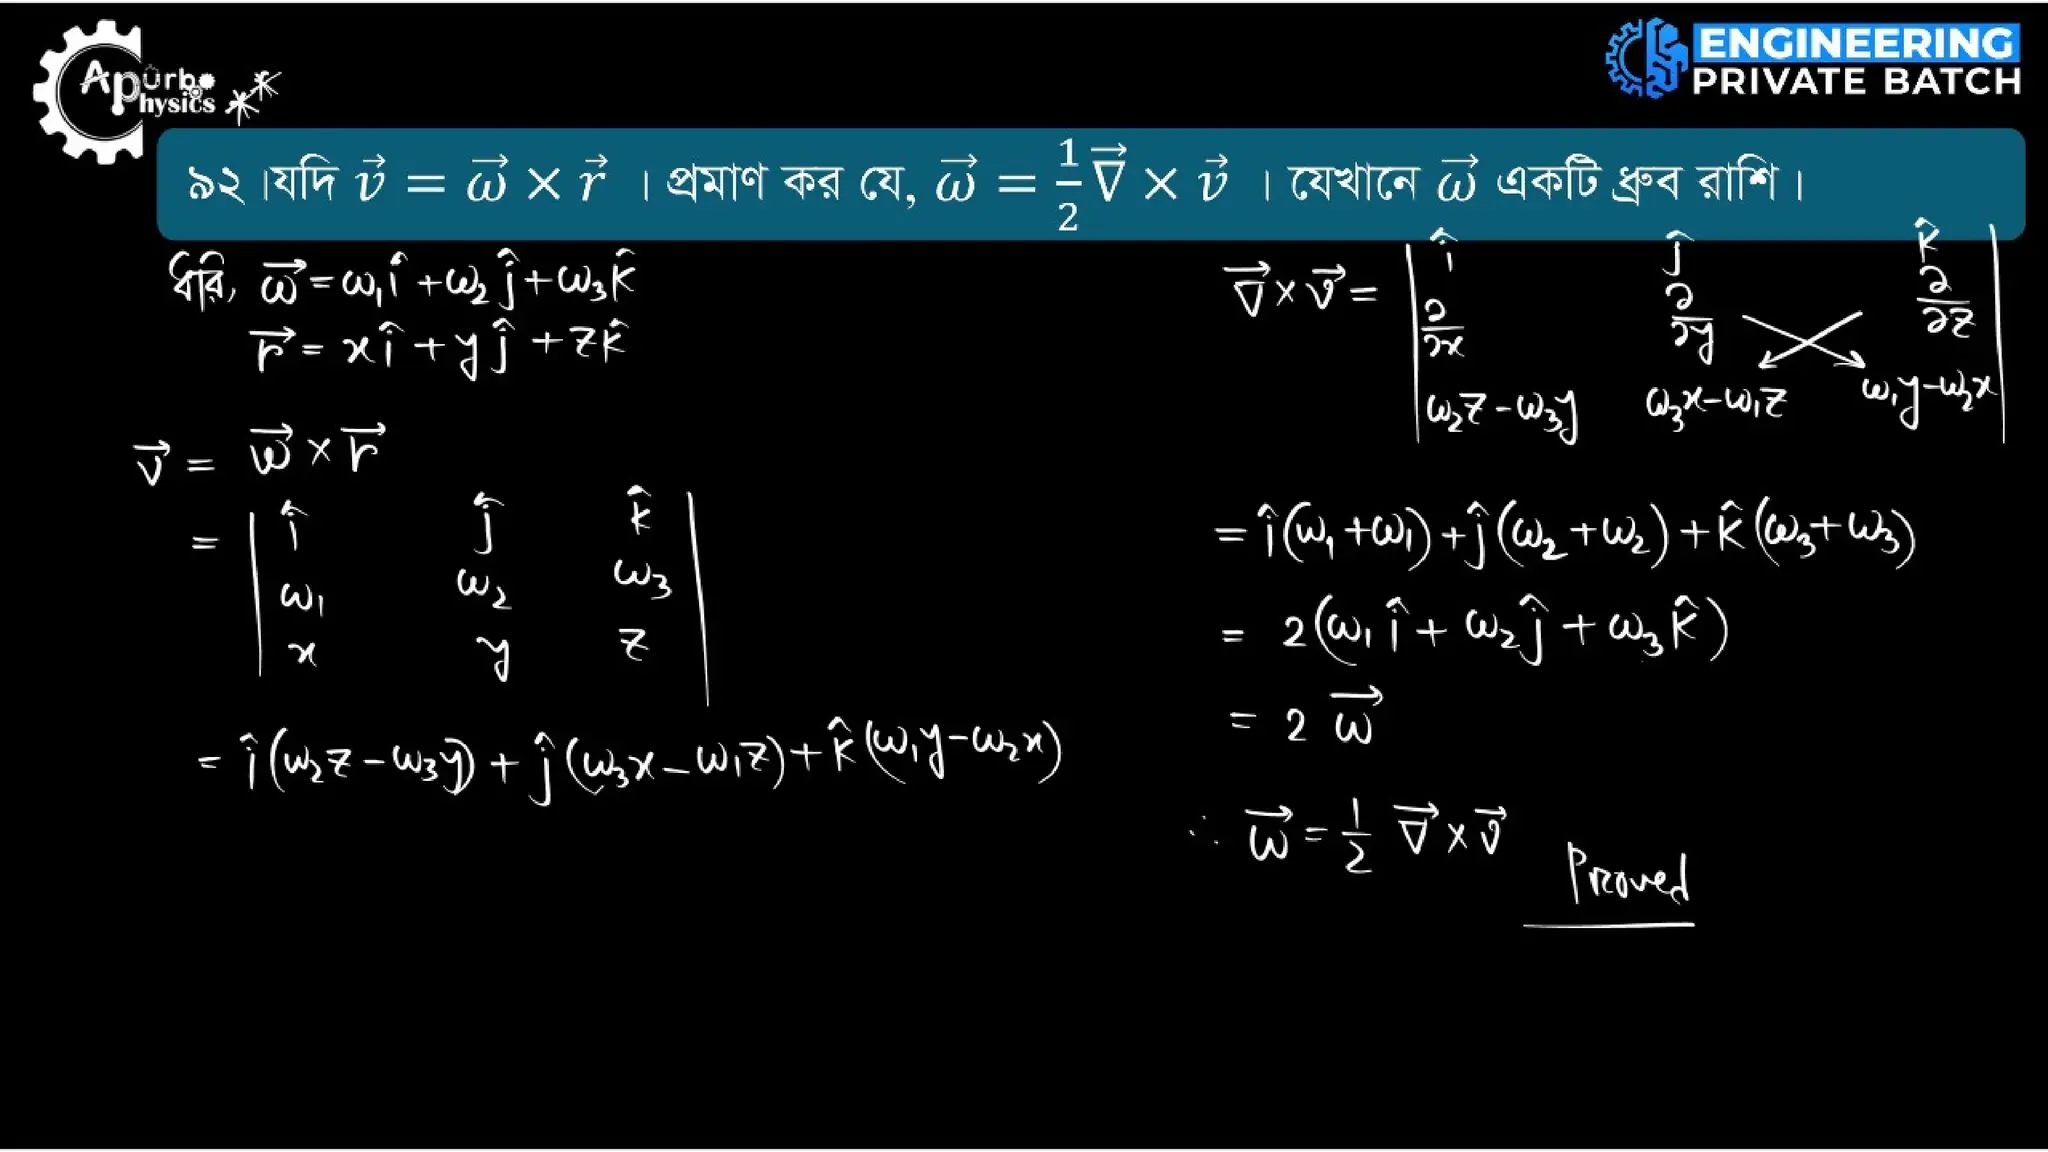 Apurbo
Physics
ENGINEERING
PRIVATE BATCH
৯২।যদি v⃗ = ω⃗ × r⃗ । প্রমাণ কর যে, ω⃗ = 1/2 ∇⃗ × v⃗ । যেখানে ω⃗ একটি ধ্রুব রাশি।
ধরি, ω⃗ = ω₁î + ω₂ĵ + ω₃k̂
r⃗ = xî + yĵ + zk̂
v⃗ = ω⃗ × r⃗
= | î ĵ k̂
ω₁ ω₂ ω₃
x y z |
= î(ω₂z - ω₃y) + ĵ(ω₃x - ω₁z) + k̂(ω₁y - ω₂x)
∇⃗ × v⃗ = | î ĵ k̂
∂/∂x ∂/∂y ∂/∂z
ω₂z - ω₃y ω₃x - ω₁z ω₁y - ω₂x |
= î(ω₁ + ω₁) + ĵ(ω₂ + ω₂) + k̂(ω₃ + ω₃)
= 2(ω₁î + ω₂ĵ + ω₃k̂)
= 2 ω⃗
∴ ω⃗ = 1/2 ∇⃗ × v⃗
Proved